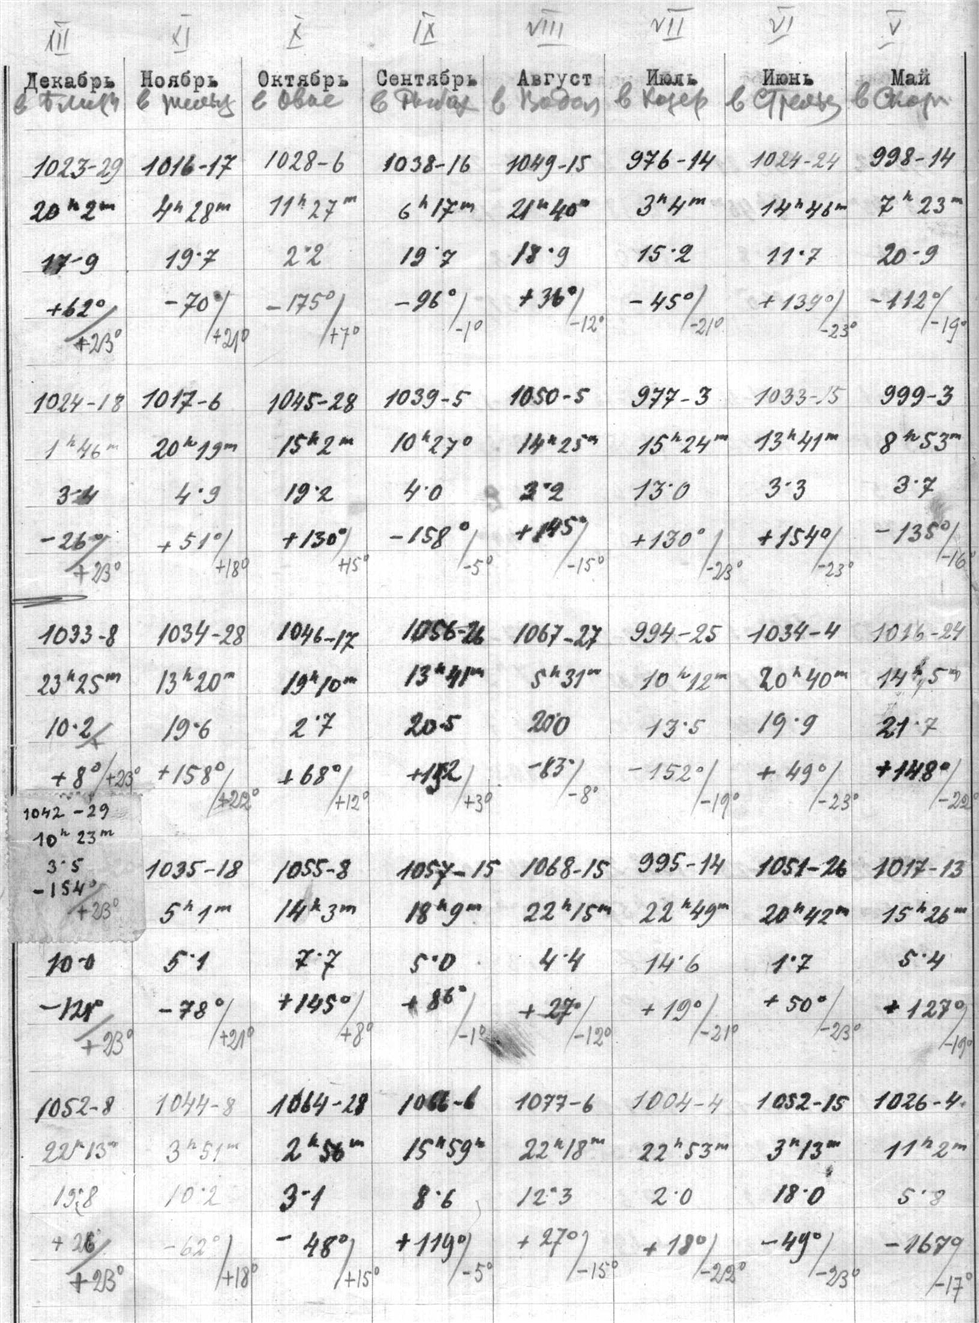 XII XI X IX VIII VII VI V
Декабрь Ноябрь Октябрь Сентябрь Август Июль Июнь Май
в Близн в в Овне в Рыбах в Водол в Козер в Стрельц в Скорп
1023-29 1016-17 1028-6 1038-16 1049-15 976-14 1024-24 998-14
20ʰ2ᵐ 4ʰ28ᵐ 11ʰ27ᵐ 6ʰ17ᵐ 21ʰ40ᵐ 3ʰ4ᵐ 14ʰ46ᵐ 7ʰ23ᵐ
17·9 19·7 2·2 19·7 18·9 15·2 11·7 20·9
+62°/+23° -70°/+21° -175°/+7° -96°/-1° +36°/-12° -45°/-21° +134°/-23° -112°/-19°
1024-18 1017-6 1045-28 1039-5 1050-5 977-3 1033-15 999-3
1ʰ46ᵐ 20ʰ19ᵐ 15ʰ2ᵐ 10ʰ27⁰ 14ʰ25ᵐ 15ʰ24ᵐ 13ʰ41ᵐ 8ʰ53ᵐ
3·4 4·9 19·2 4·0 3·2 13·0 3·3 3·7
-26°/+23° +51°/+18° +130°/+15° -158°/-5° +145°/-15° +130°/-23° +154°/-23° -135°/-16°
1033-8 1034-28 1046-17 1056-26 1067-27 994-25 1034-4 1016-24
23ʰ25ᵐ 13ʰ20ᵐ 19ʰ10ᵐ 13ʰ41ᵐ 5ʰ31ᵐ 10ʰ12ᵐ 20ʰ40ᵐ 14ʰ5ᵐ
10·2 19·6 2·7 20·5 20·0 13·5 19·9 21·7
+8°/+23° +158°/+22° +68°/+12° +152/+3° -83°/-8° -152°/-19° +49°/-23° +148°/-22°
1042-29
10ʰ 23ᵐ
3·5
-154°/+23°
1035-18 1055-8 1057-15 1068-15 995-14 1051-26 1017-13
5ʰ1ᵐ 14ʰ3ᵐ 18ʰ9ᵐ 22ʰ15ᵐ 22ʰ49ᵐ 20ʰ42ᵐ 15ʰ26ᵐ
10·0 5·1 7·7 5·0 4·4 14·6 1·7 5·4
/+23° -78°/+21° +145°/+8° +86°/-1° +27°/-12° +19°/-21° +50°/-23° +127°/-19°
1052-8 1044-8 1064-28 1066-6 1077-6 1004-4 1052-15 1026-4
22ʰ13ᵐ 3ʰ51ᵐ 2ʰ56ᵐ 15ʰ59ᵐ 22ʰ18ᵐ 22ʰ53ᵐ 3ʰ13ᵐ 11ʰ2ᵐ
19·8 10·2 3·1 8·6 12·3 2·0 18·0 5·8
+26°/+23° -62°/+18° -48°/+15° +119°/-5° +27°/-15° +18°/-22° -49°/-23° -167°/-17°